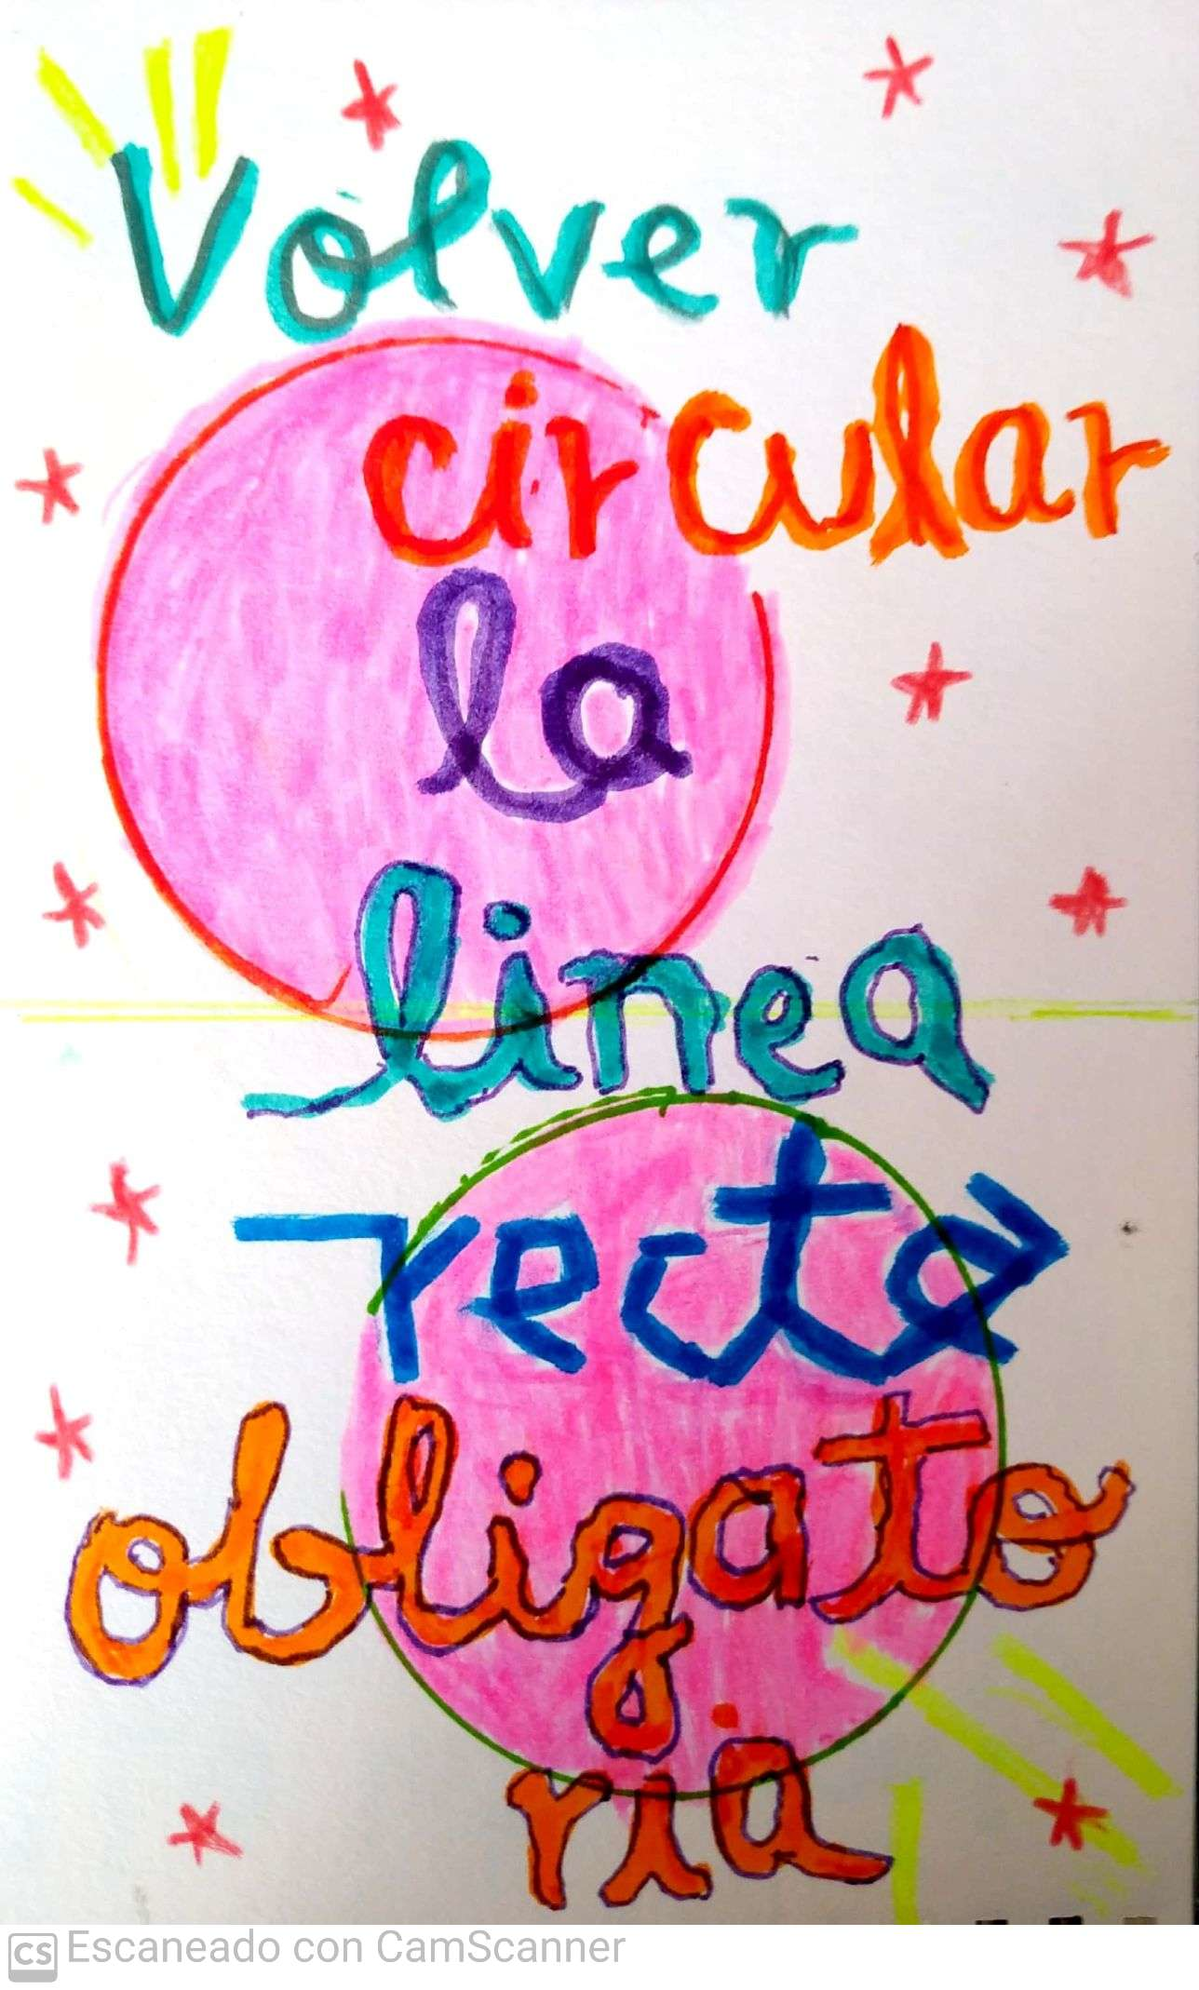 Volver
circular
la
linea
recta
obligato
ria
CS Escaneado con CamScanner